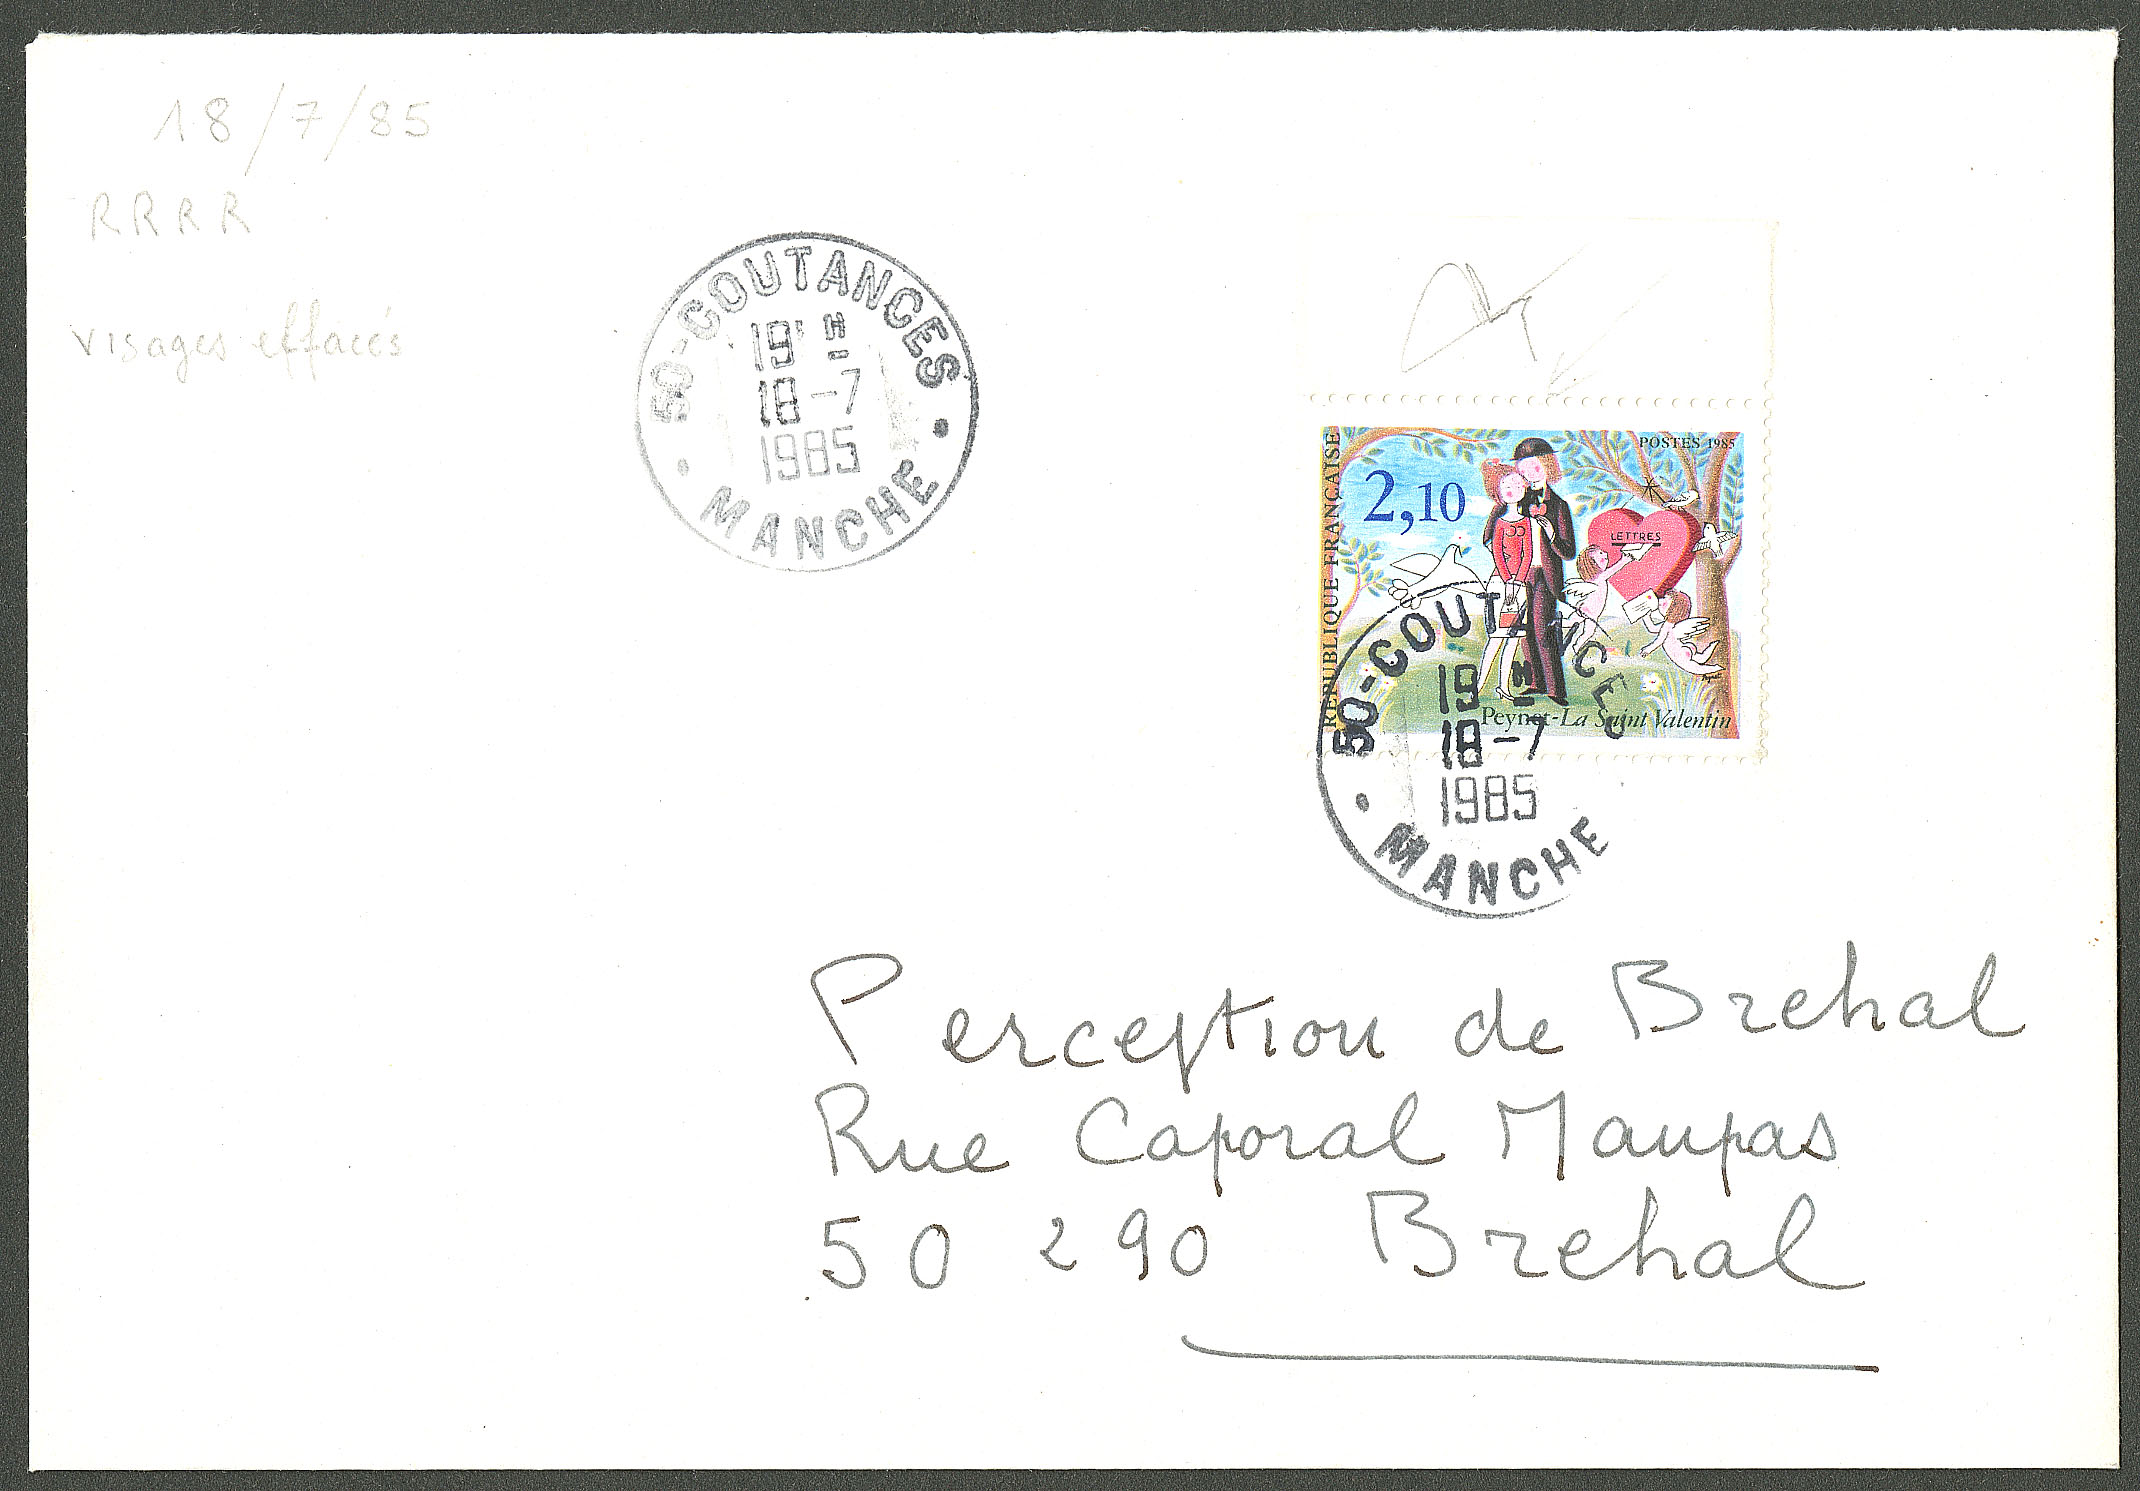 18/7/85
RRRR
visages effacés
50-COUTANCES
19 H
18-7
1985
MANCHE
REPUBLIQUE FRANÇAISE
POSTES 1985
2,10
LETTRES
Peynet-La Saint Valentin
50-COUTANCES
19 H
18-7
1985
MANCHE
Perception de Brehal
Rue Caporal Maupas
50 290 Brehal